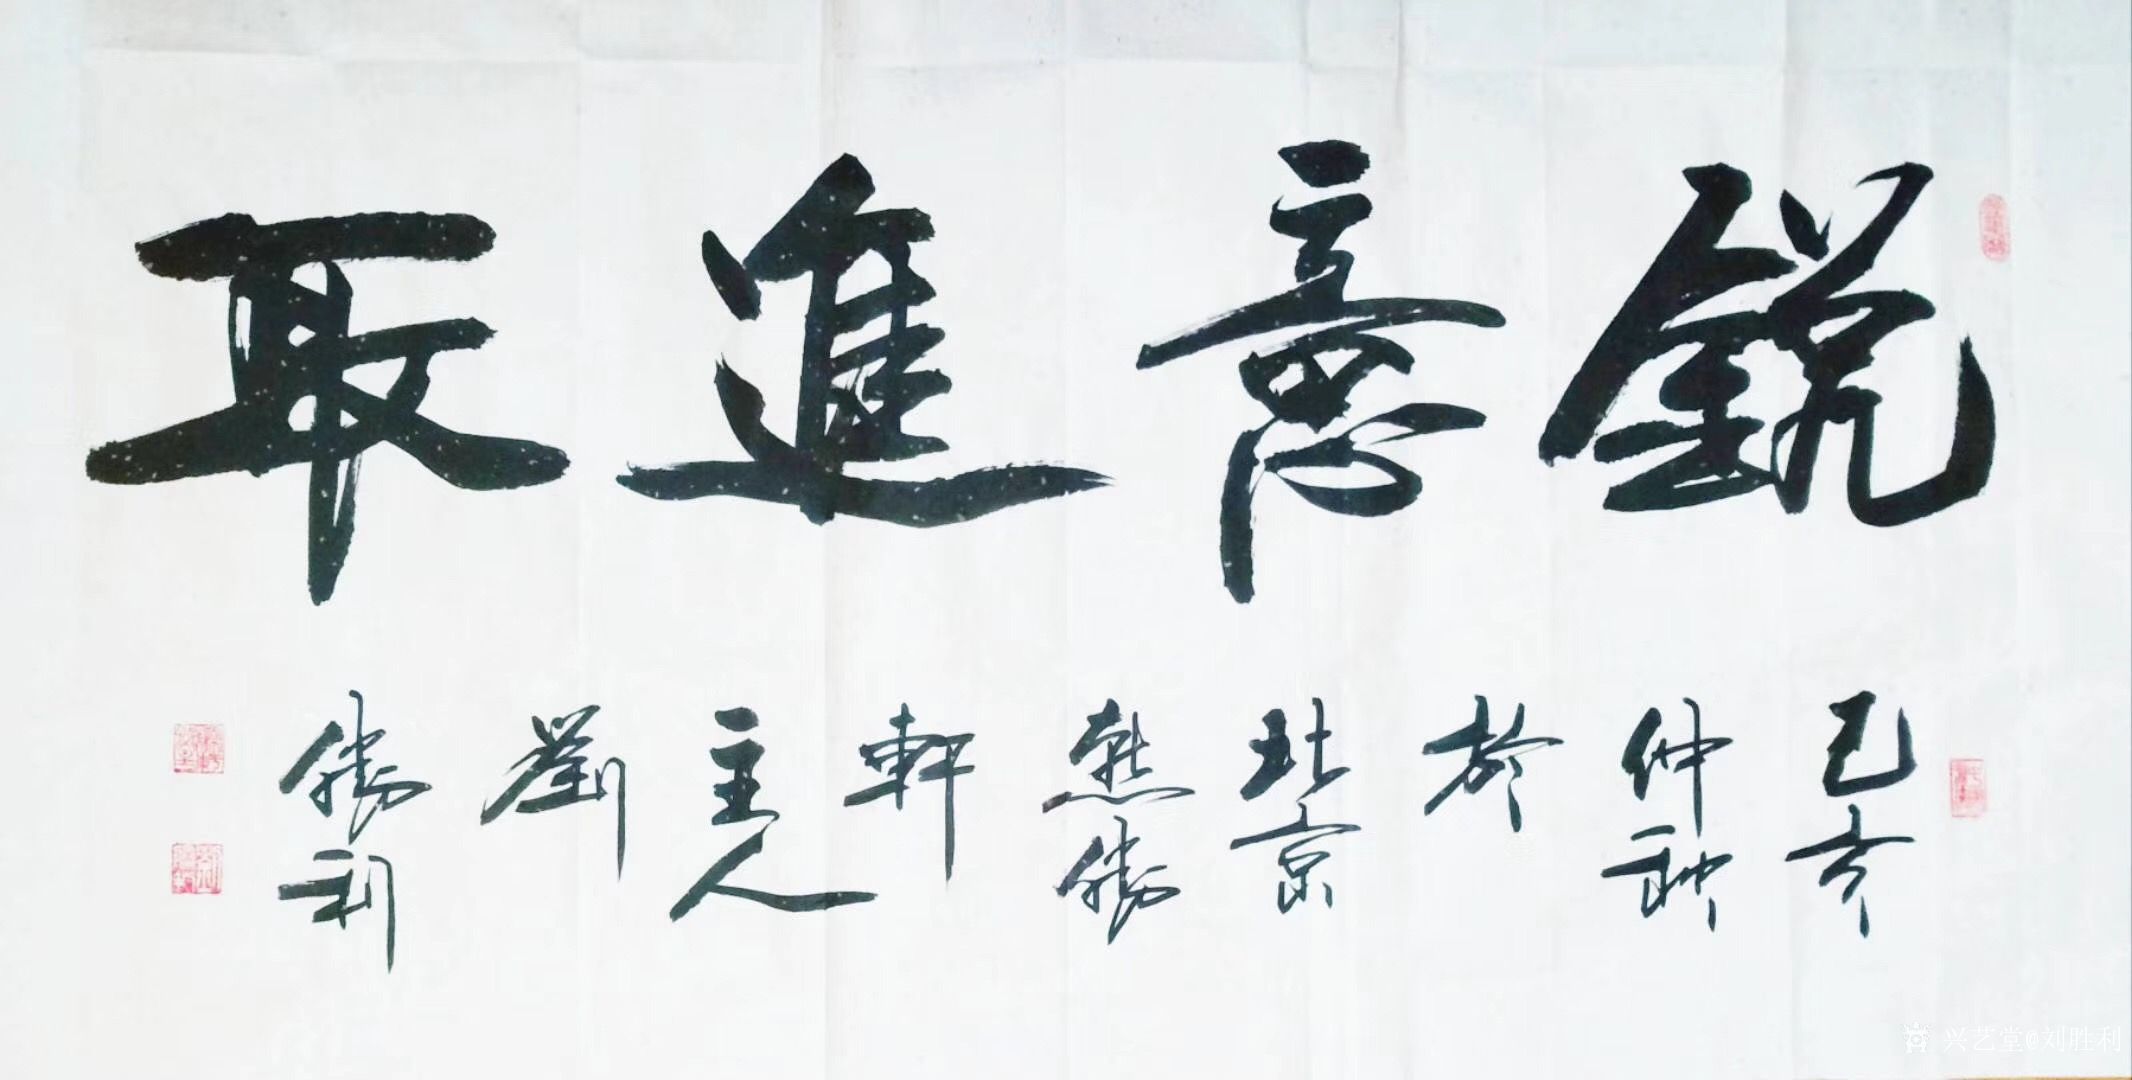 銳意進取
己亥仲於北京勝軒主人劉勝利
兴艺堂@刘胜利